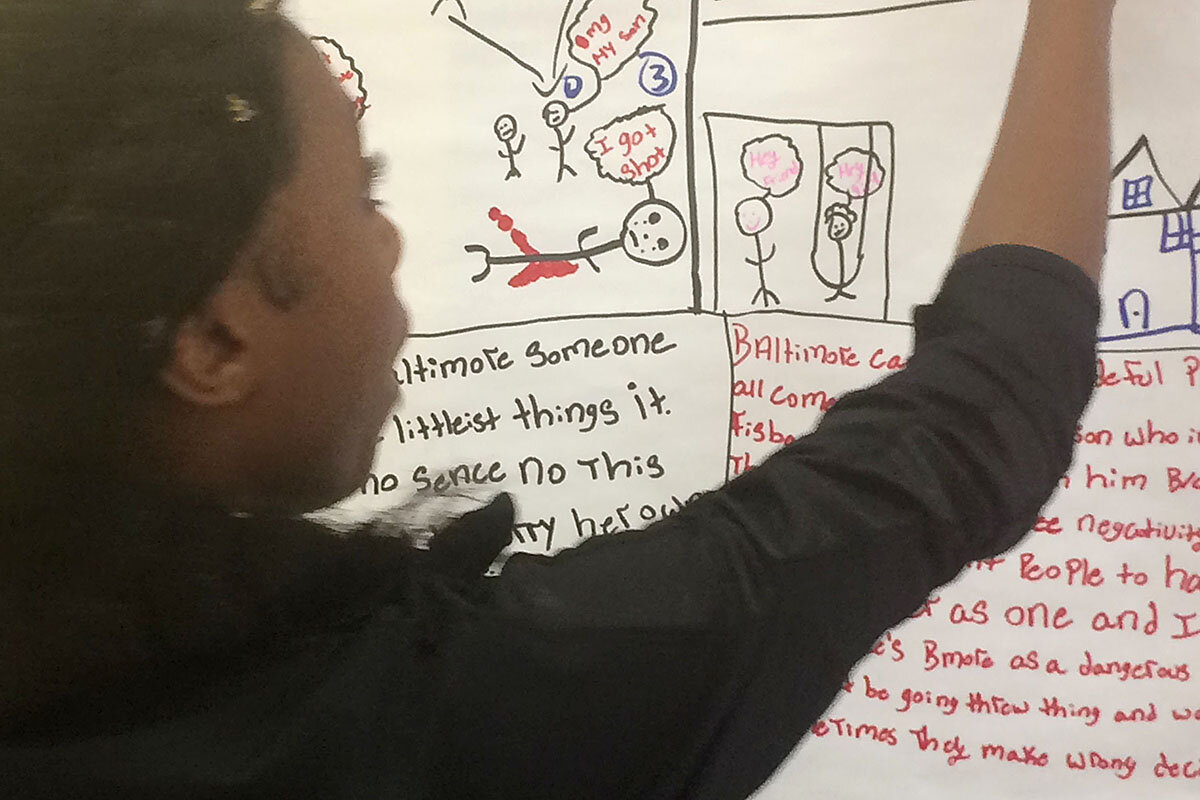 omg
MY Son
3
I got
shot
Hey
Friend
Hey
altimore Someone
littleist things it.
no sence no This
rry her
BAltimore Ca
all com
Fisb
Th
deful P
son who i
him B
ee negativity
People to ha
as one and I
e's Bmore as a dangerous
be going threw thing and w
etimes They make wrong deci